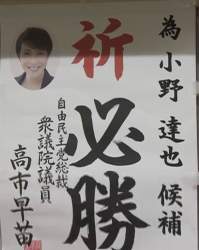 為小野達也候補
祈
必勝
自由民主党総裁
衆議院議員
高市早苗